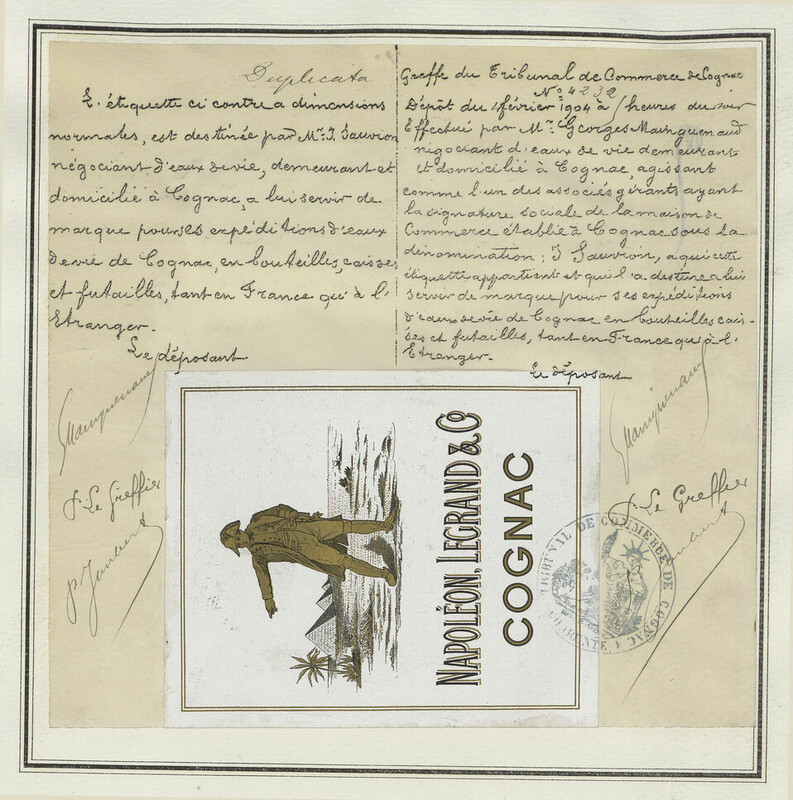 Duplicata
L'étiquette ci contre a dimensions
normales, est destinée par Mr. J. Sauvion
négociant d'eaux de vie, demeurant et
domicilié à Cognac, a lui servir de
marque pour ses expéditions d'eaux
de vie de Cognac, en bouteilles, caisses
et futailles, tant en France qu'à l'
Etranger.
Le déposant
GMainguenaud
P. Le Greffier
Greffe du Tribunal de Commerce de Cognac
No. 4232
Dépôt du 1 février 1904 à heures du soir
Effectué par Mr. Georges Mainguenaud
négociant d'eaux de vie demeurant
et domicilié à Cognac, agissant
comme l'un des associés gérants ayant
la signature sociale de la maison de
Commerce établie à Cognac sous la
dénomination: J Sauvion, a qui cette
étiquette appartient et qui l'a destine a lui
servir de marque pour ses expéditions
d'eaux de vie de Cognac en bouteilles cais-
ses et futailles, tant en France qu'à l'
Etranger.
Le déposant
GMainguenaud
P. Le Greffier
NAPOLÉON, LEGRAND & Co
COGNAC
TRIBUNAL DE COMMERCE DE COGNAC
CHARENTE